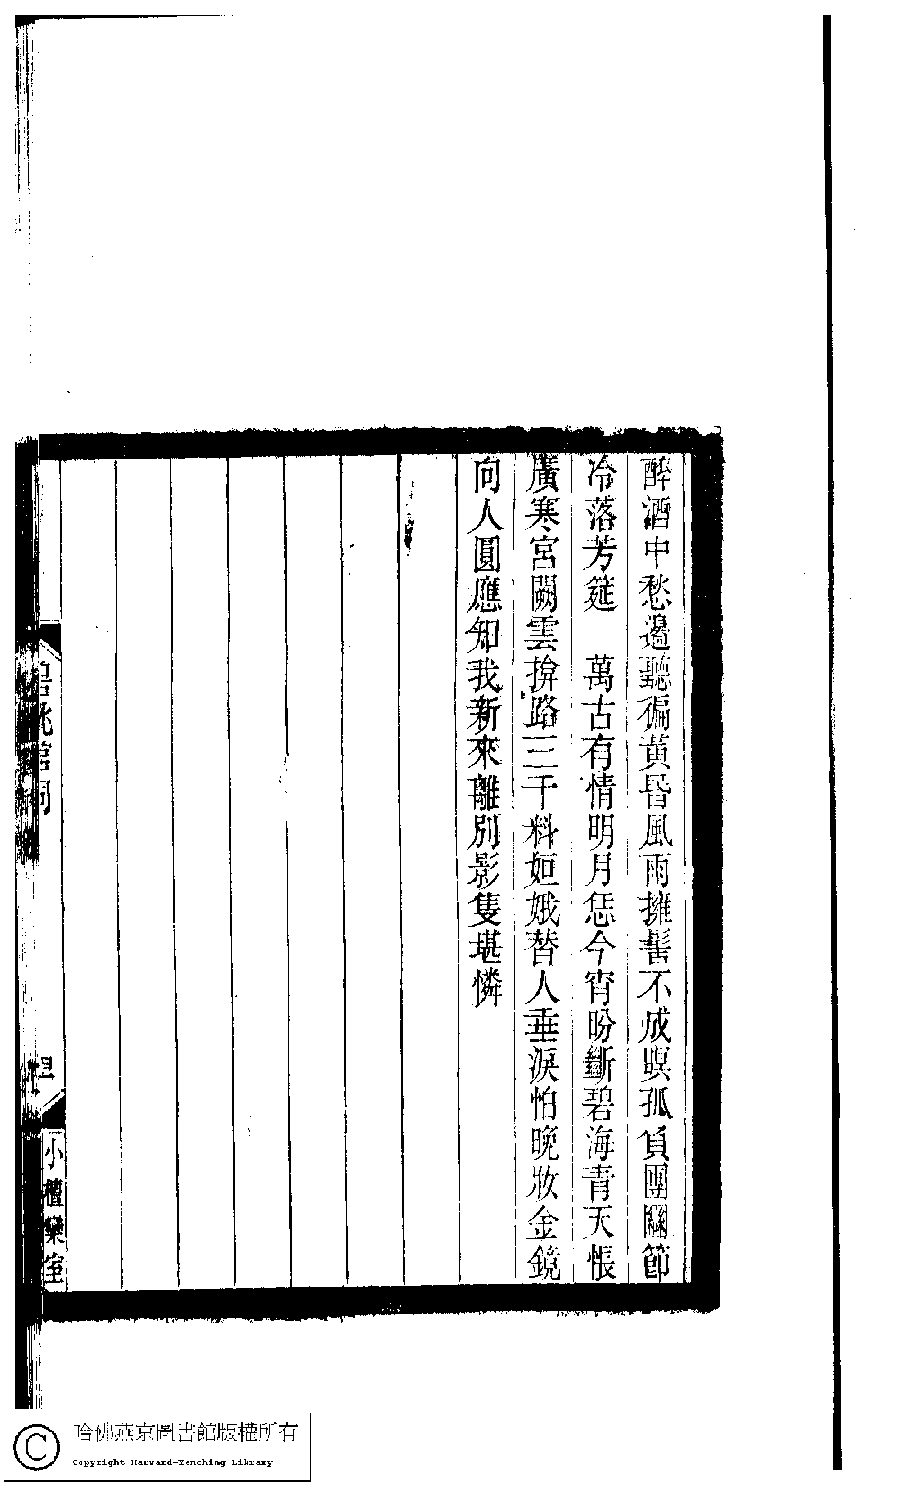 醉酒中愁邊聽徧黃昏風雨擁髻不成瞑孤負團圞節
冷落芳筵　萬古有情明月恁今宵盼斷碧海青天悵
廣寒宮闕雲揜路三千料姮娥替人垂淚怕晚妝金鏡
向人圓應知我新來離別影隻堪憐
小檀欒室
哈佛燕京圖書館版權所有
Copyright Harvard-Yenching Library